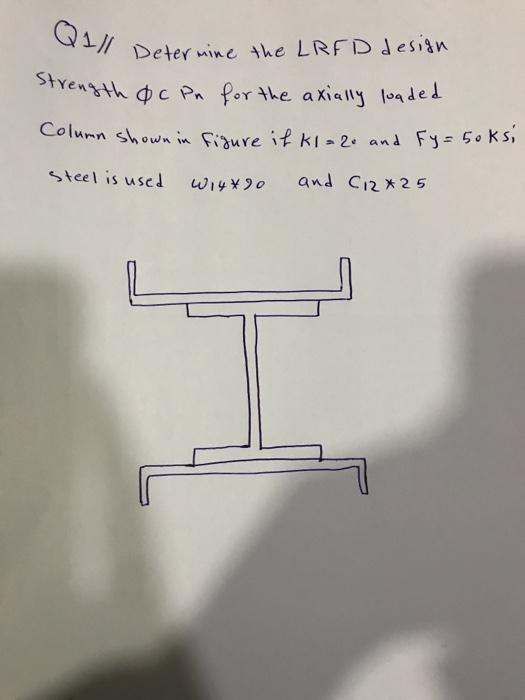 Q1// Determine the LRFD design
Strength ϕc Pn for the axially loaded
Column shown in Figure if Kl = 20 and Fy = 50 Ksi
steel is used W14*90 and C12*25